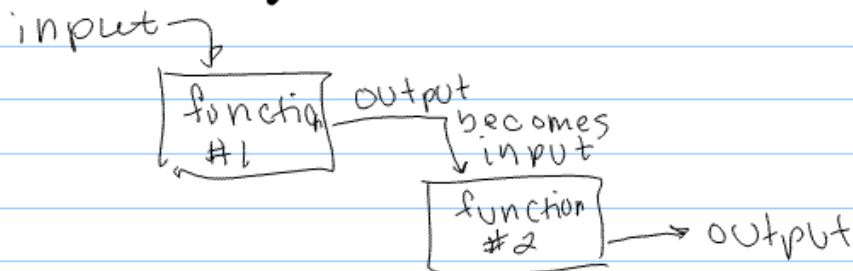 input
function
#1
output
becomes
input
function
#2
output